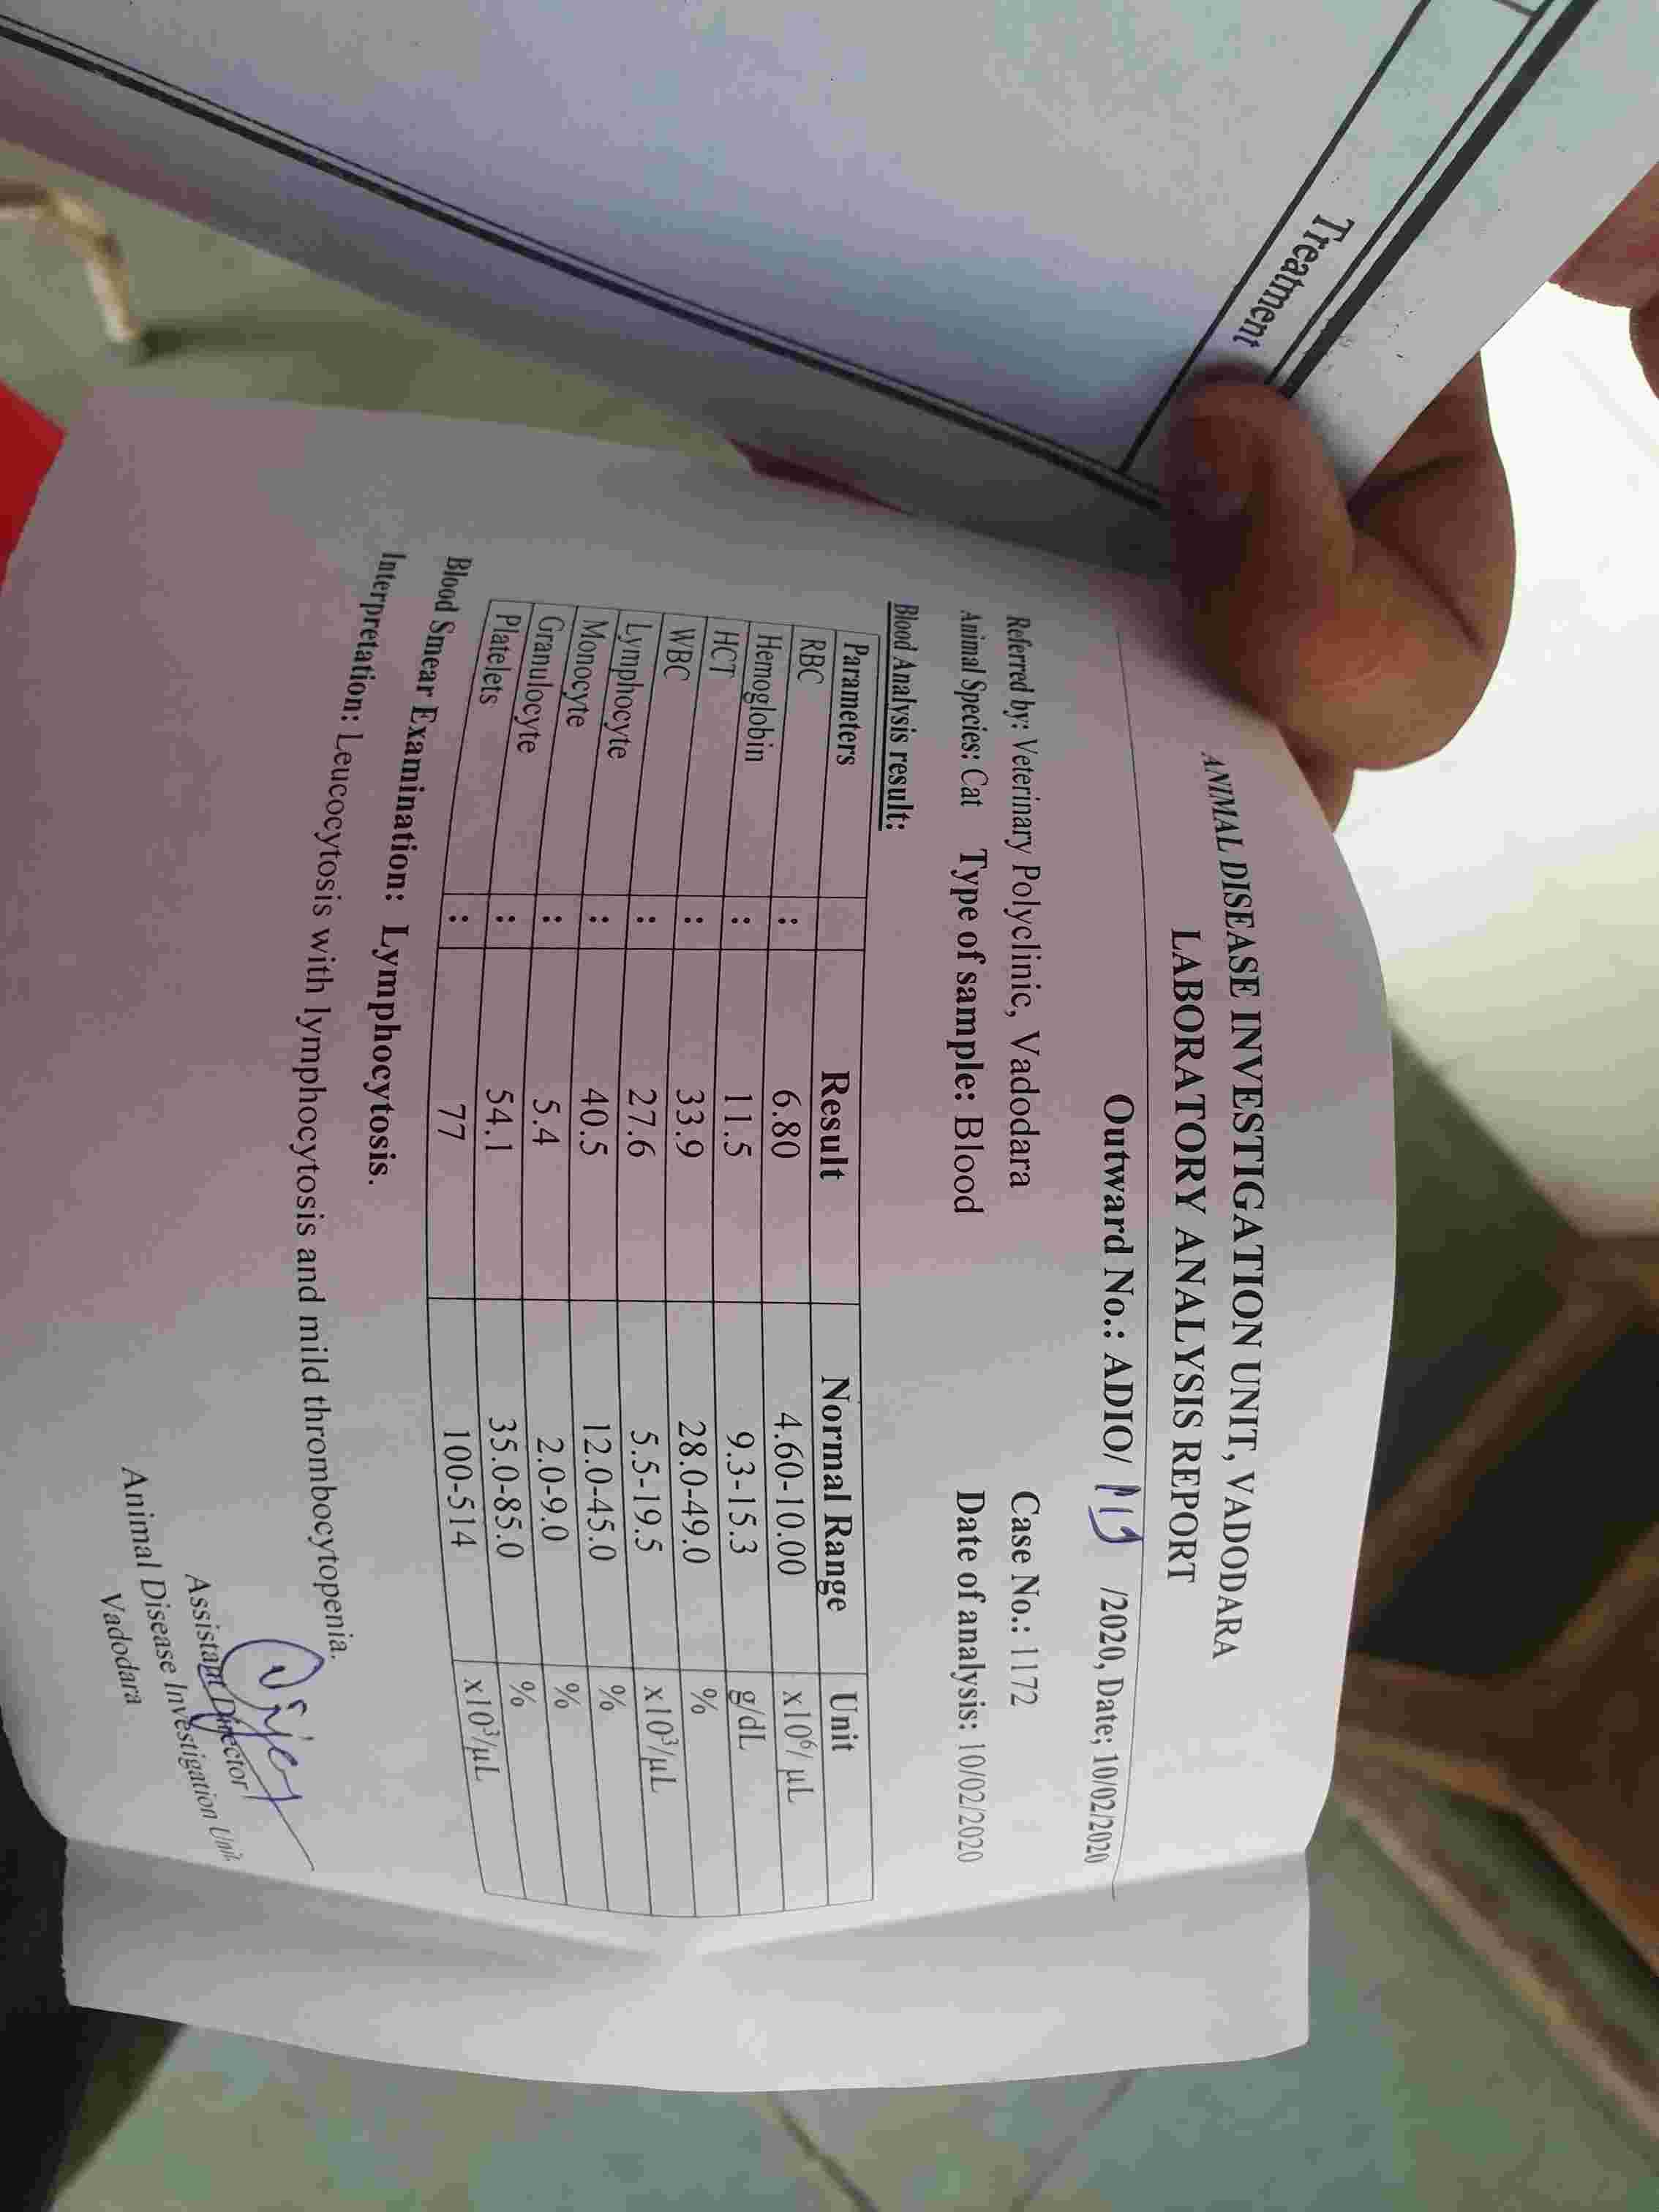 Treatment
ANIMAL DISEASE INVESTIGATION UNIT, VADODARA
LABORATORY ANALYSIS REPORT
Outward No.: ADIO/ /2020, Date; 10/02/2020
Referred by: Veterinary Polyclinic, Vadodara Case No.: 1172
Animal Species: Cat Type of sample: Blood Date of analysis: 10/02/2020
Blood Analysis result:
Parameters Result Normal Range Unit
RBC : 6.80 4.60-10.00 x10⁶/ µL
Hemoglobin : 11.5 9.3-15.3 g/dL
HCT : 33.9 28.0-49.0 %
WBC : 27.6 5.5-19.5 x10³/µL
Lymphocyte : 40.5 12.0-45.0 %
Monocyte : 5.4 2.0-9.0 %
Granulocyte : 54.1 35.0-85.0 %
Platelets : 77 100-514 x10³/µL
Blood Smear Examination: Lymphocytosis.
Interpretation: Leucocytosis with lymphocytosis and mild thrombocytopenia.
Assistant Director
Animal Disease Investigation Unit
Vadodara